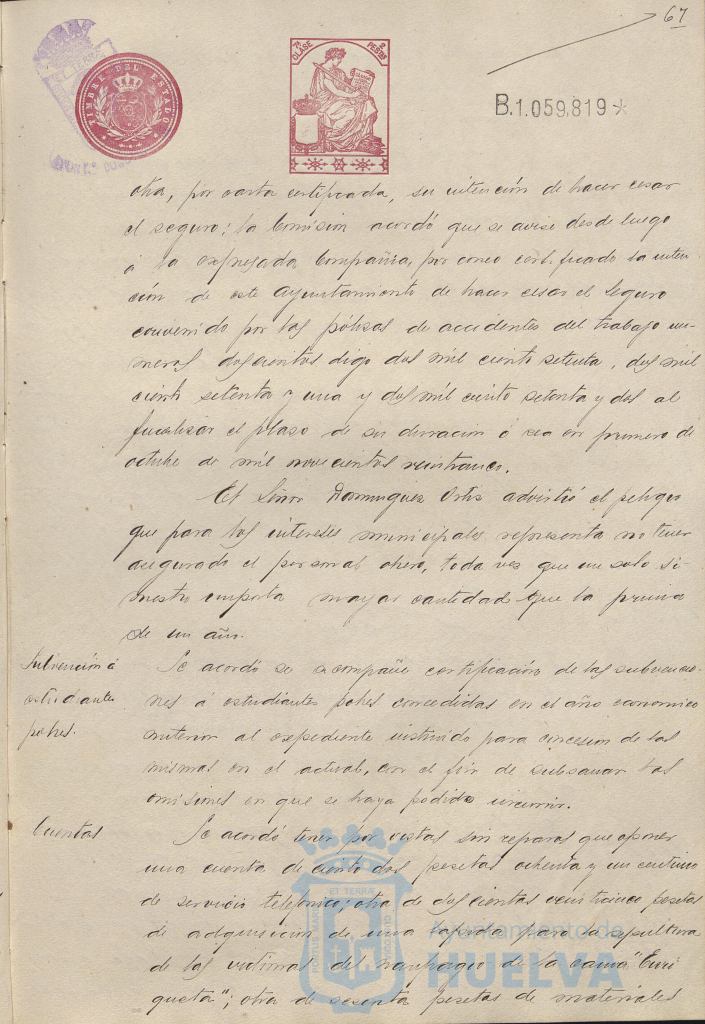 67
TIMBRE DEL ESTADO
7ª CLASE
2 PESTAS
B.1.059.819*
otra, por carta certificada, su intención de hacer cesar
el seguro; la Comisión acordó que se avise desde luego
á la expresada Compañia, por correo certificado la inten-
ción de este Ayuntamiento de hacer cesar el Seguro
convenido por las pólizas de accidentes del trabajo nu-
meros doscientos digo dos mil ciento setenta, dos mil
ciento setenta y una y dos mil ciento setenta y dos al
finalizar el plazo de su duración ó sea en primero de
octubre de mil novecientos veinticinco.
El Señor Dominguez Ortiz advirtió el peligro
que para los intereses municipales representa no tener
asegurado el personal obrero, toda vez que un solo si-
niestro importa mayor cantidad que la prima
de un año.
Subvención á
estudiantes
pobres.
Se acordó se acompañe certificación de las subvencio-
nes á estudiantes pobres concedidas en el año economico
anterior al expediente instruido para concesión de las
mismas en el actual, con el fin de subsanar las
omisiones en que se haya podido incurrir.
Cuentas
Se acordó tener por vistas sin reparos que oponer
una cuenta de ciento dos pesetas ochenta y un centimo
de servicio telefonico; otra de doscientas veinticinco pesetas
de adquisición de una lapida para la sepultura
de las victimas del naufragio de la canoa "Enri
queta"; otra de sesenta pesetas de materiales
Ayuntamiento de
HUELVA